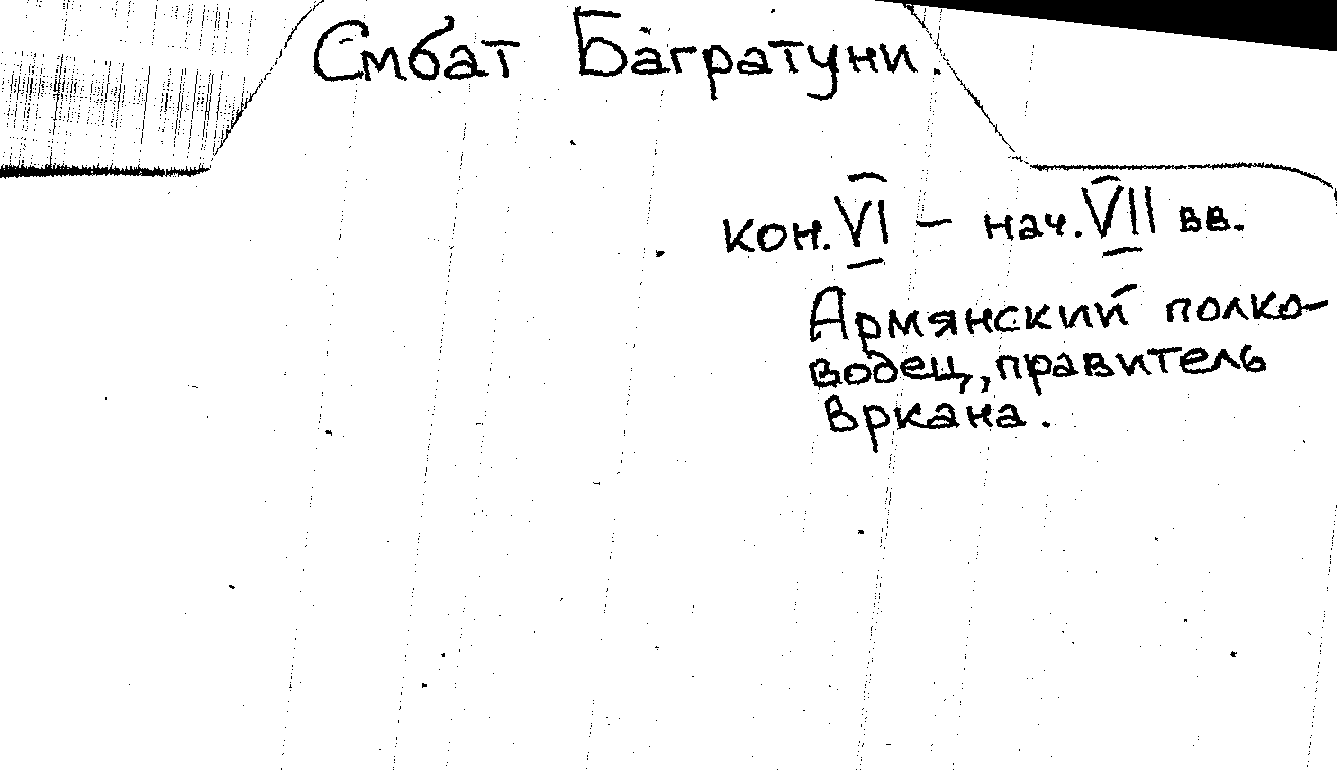 Смбат Багратуни.
кон. VI – нач. VII вв.
Армянский полко-
водец, правитель
Вркана.